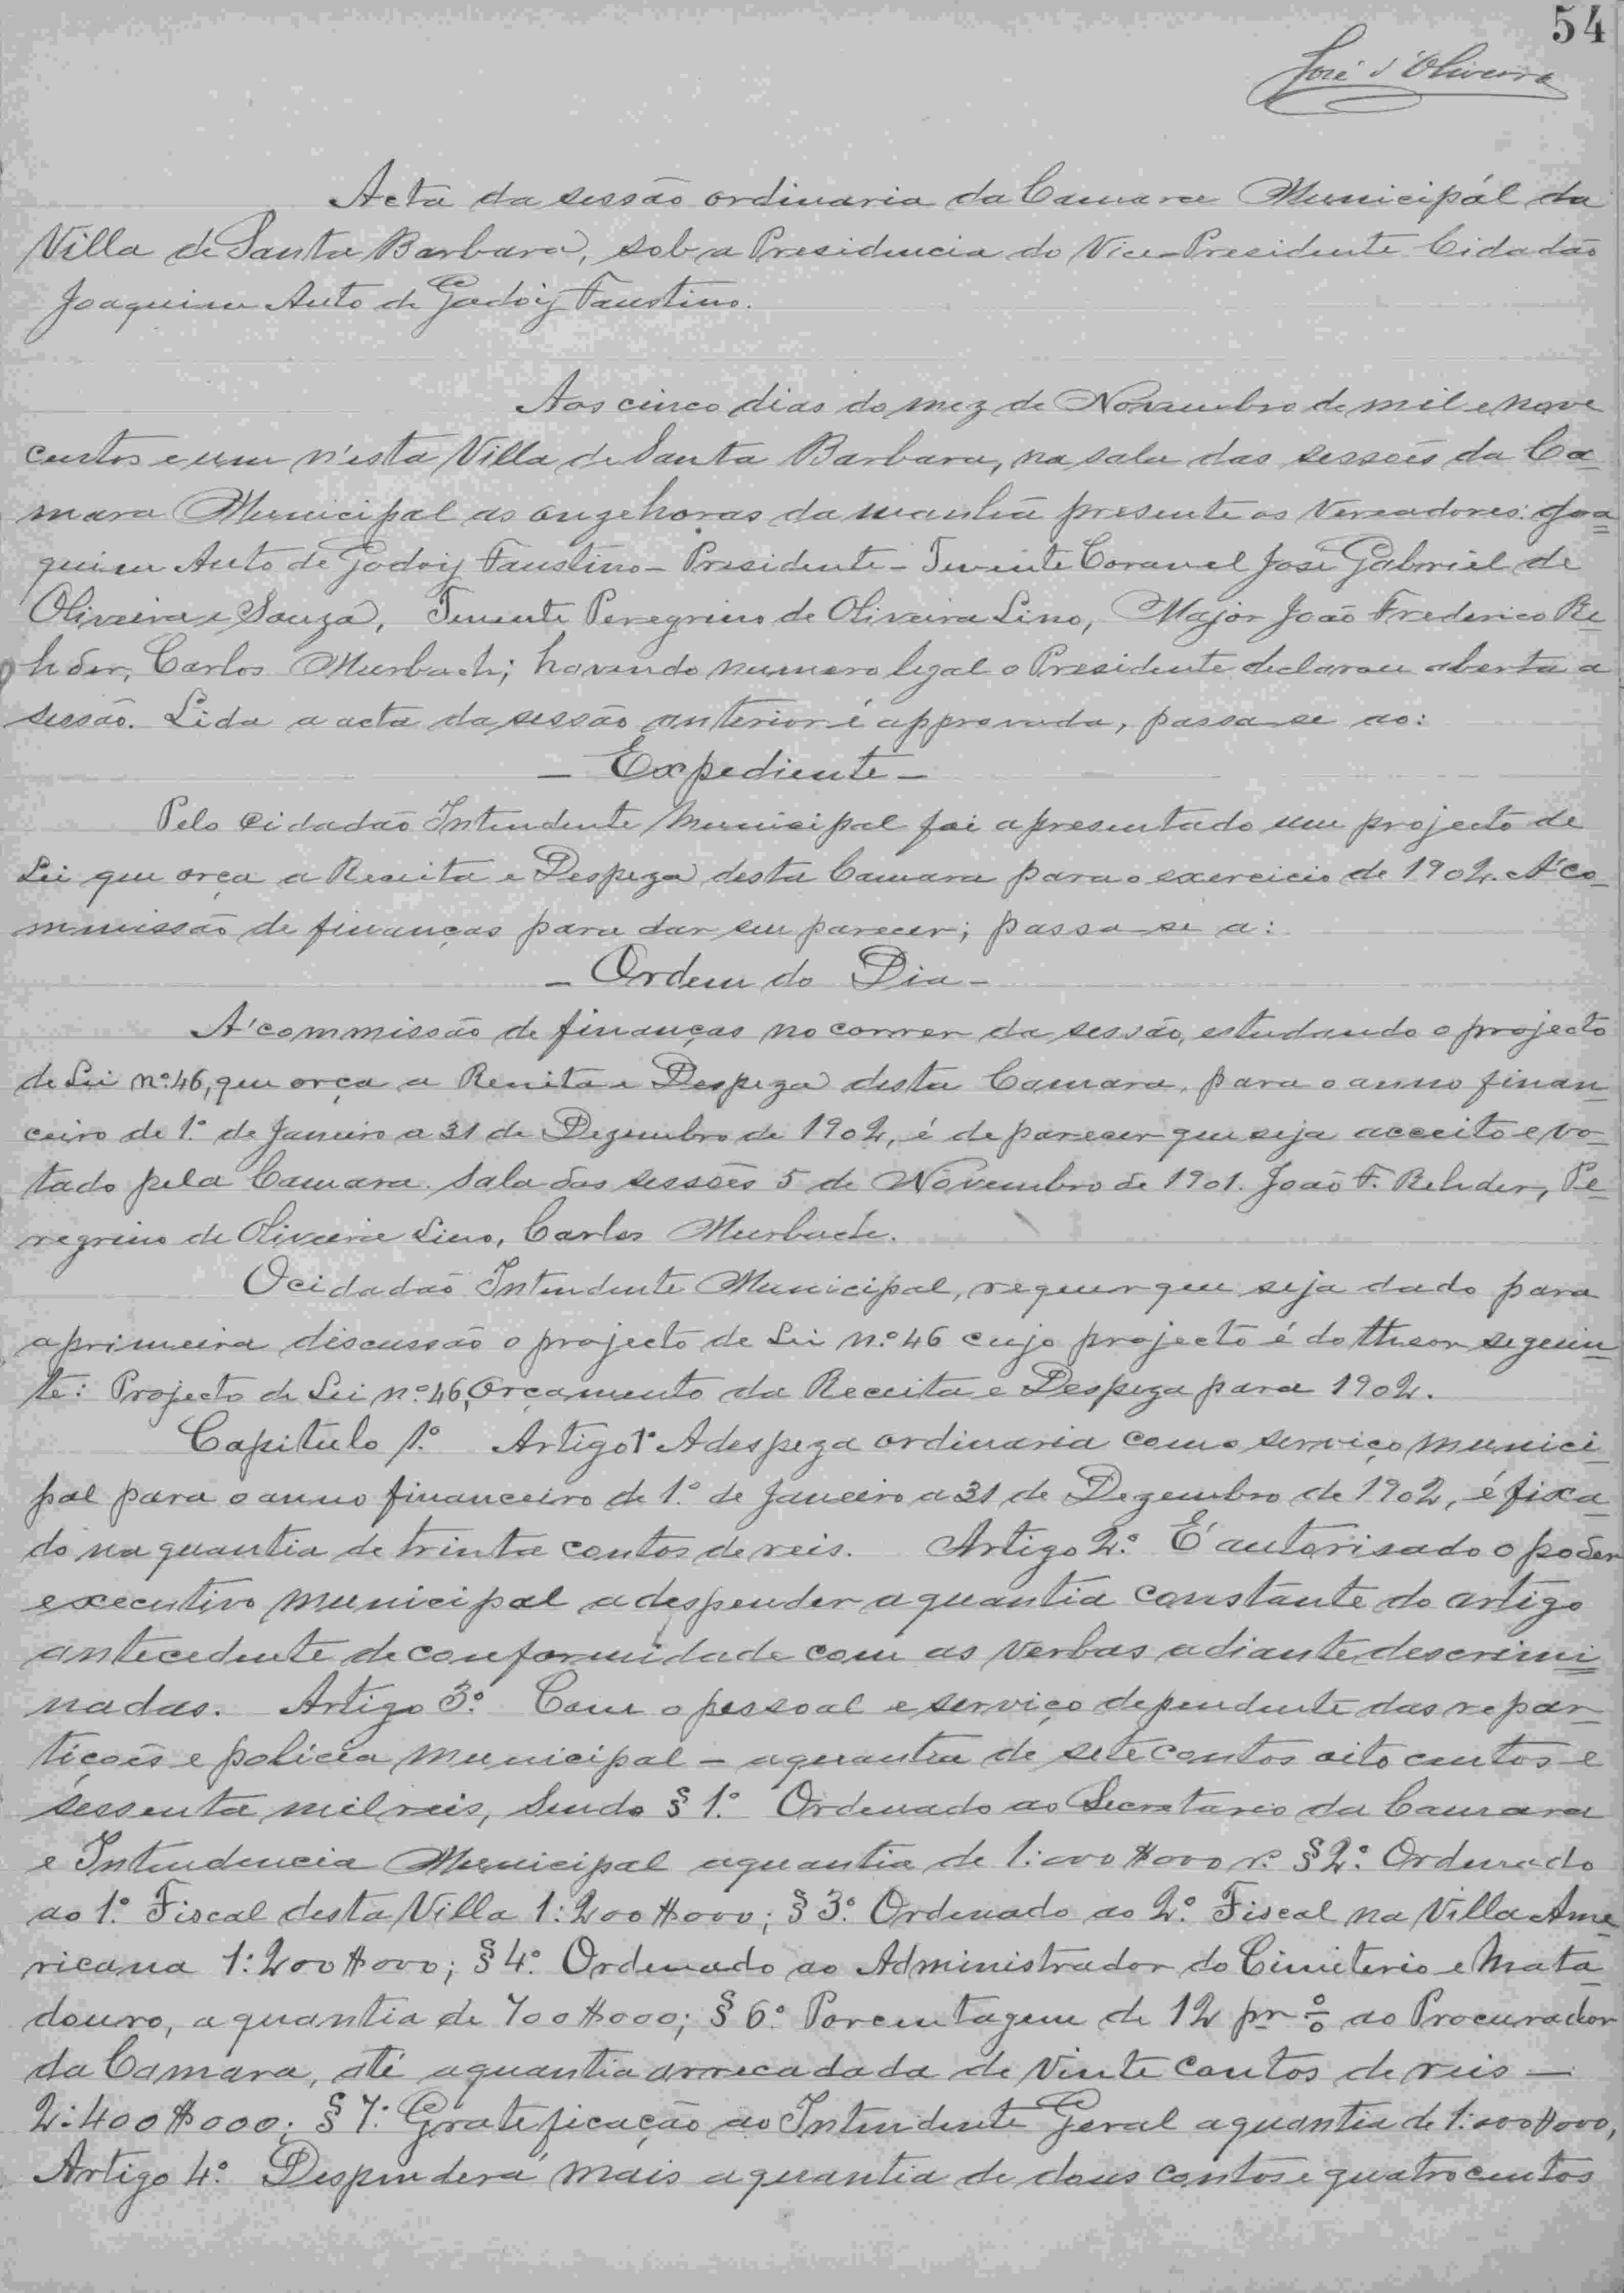 54
José d'Oliveira
Acta da sessão ordinaria da Camara Municipál da
Villa de Santa Barbara, sob a Presidencia do Vice-Presidente Cidadão
Joaquim Auto de Godoij Faustino.
Aos cinco dias do mez de Novembro de mil e nove
centos e um n'esta Villa de Santa Barbara, na sala das sessoẽs da Ca-
mara Municipal as onze horas da manhã presente os Vereadores: Joa-
quim Auto de Godoij Faustino - Presidente - Tenente Coronel José Gabriel de
Oliveira e Souza, Tenente Peregrino de Oliveira Lino, Major João Frederico Re-
hder, Carlos Murbach; havendo numero legal o Presidente declarou aberta a
sessão. Lida a acta da sessão anterior é approvada, passa-se ao:
- Expediente -
Pelo Cidadão Intendente Municipal foi apresentado um projecto de
Lei que orça a Receita e Despeza desta Camara para o exercicio de 1902. A' co-
mmissão de finanças para dar seu parecer; passa-se a:
- Ordem do Dia -
A' commissão de finanças no correr da sessão, estudando o projecto
de Lei nº 46, que orça a Receita e Despeza desta Camara, para o anno finan-
ceiro de 1º de Janeiro a 31 de Dezembro de 1902, é de parecer que seja acceito e vo-
tado pela Camara. Sala das sessões 5 de Novembro de 1901. João F. Rehder, Pe-
regrino de Oliveira Lino, Carlos Murbach.
O cidadão Intendente Municipal, requer que seja dado para
a primeira discussão o projecto de Lei nº 46 cujo projecto é do theor seguin-
te: Projecto de Lei nº 46, Orçamento da Receita e Despeza para 1902.
Capitulo 1º Artigo 1º A despeza ordinaria com o serviço munici-
pal para o anno financeiro de 1º de Janeiro a 31 de Dezembro de 1902, é fixa-
do na quantia de trinta contos de reis. Artigo 2º E' autorisado o poder
executivo municipal a despender a quantia constante do artigo
antecedente de conformidade com as verbas adiante descrimi-
nadas. Artigo 3º Com o pessoal e serviço dependente das repar-
tiçoẽs e policia municipal - a quantia de sete contos oito centos e
sessenta mil reis, Sendo § 1º Ordenado ao Secretario da Camara
e Intendencia Municipal a quantia de 1:000$000 r.s § 2º Ordenado
ao 1º Fiscal desta Villa 1:200$000; § 3º Ordenado ao 2º Fiscal na Villa Ame-
ricana 1:200$000; § 4º Ordenado ao Administrador do Cimiterio e Mata-
douro, a quantia de 700$000; § 6º Porcentagem de 12 pr % ao Procurador
da Camara, até a quantia arrecadada de Vinte Contos de reis —
2:400$000; § 7º Gratificação ao Intendente Geral a quantia de 1:000$000,
Artigo 4º Despenderá mais a quantia de dous contos e quatro centos